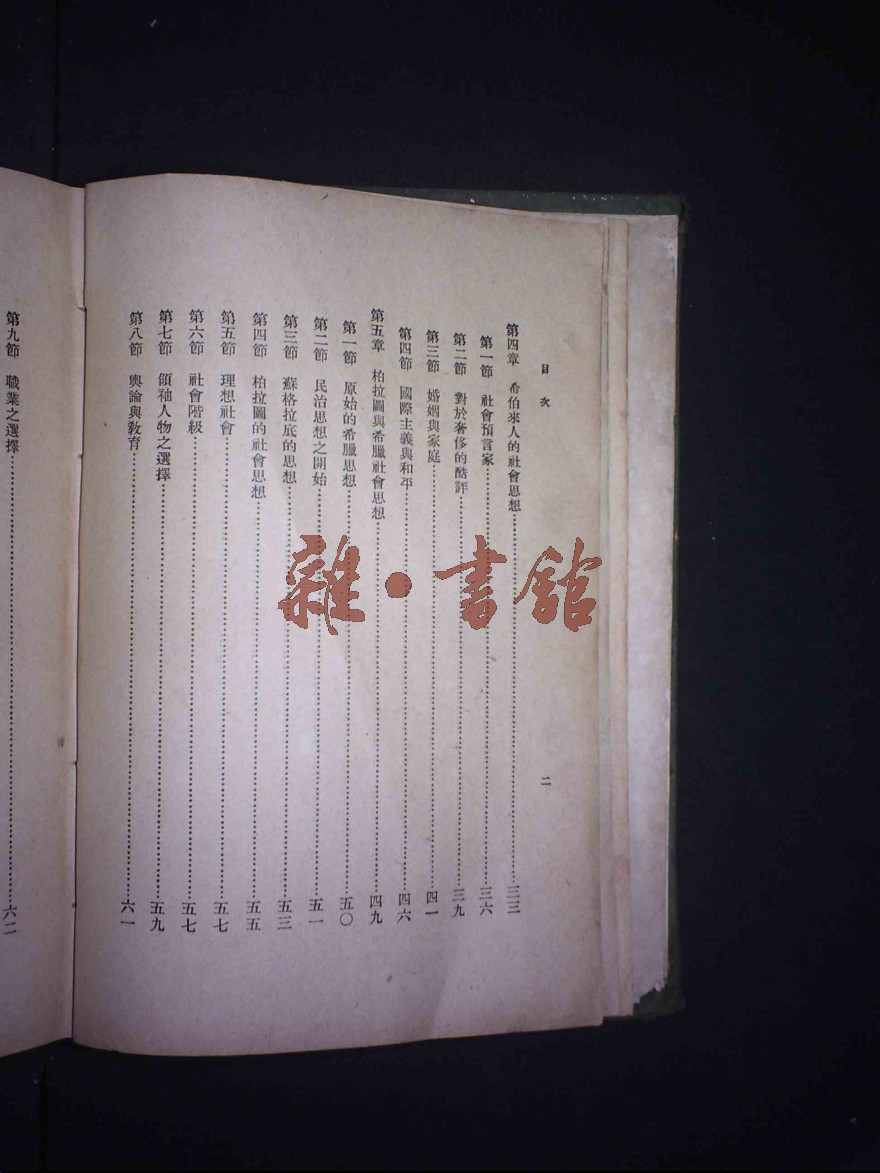 目次
二
第四章 希伯來人的社會思想……三三
第一節 社會預言家……三六
第二節 對於奢侈的酷評……三九
第三節 婚姻與家庭……四一
第四節 國際主義與和平……四六
第五章 柏拉圖與希臘社會思想……四九
第一節 原始的希臘思想……五〇
第二節 民治思想之開始……五一
第三節 蘇格拉底的思想……五三
第四節 柏拉圖的社會思想……五五
第五節 理想社會……五七
第六節 社會階級……五七
第七節 領袖人物之選擇……五九
第八節 輿論與教育……六一
第九節 職業之選擇……六二
雜·書館